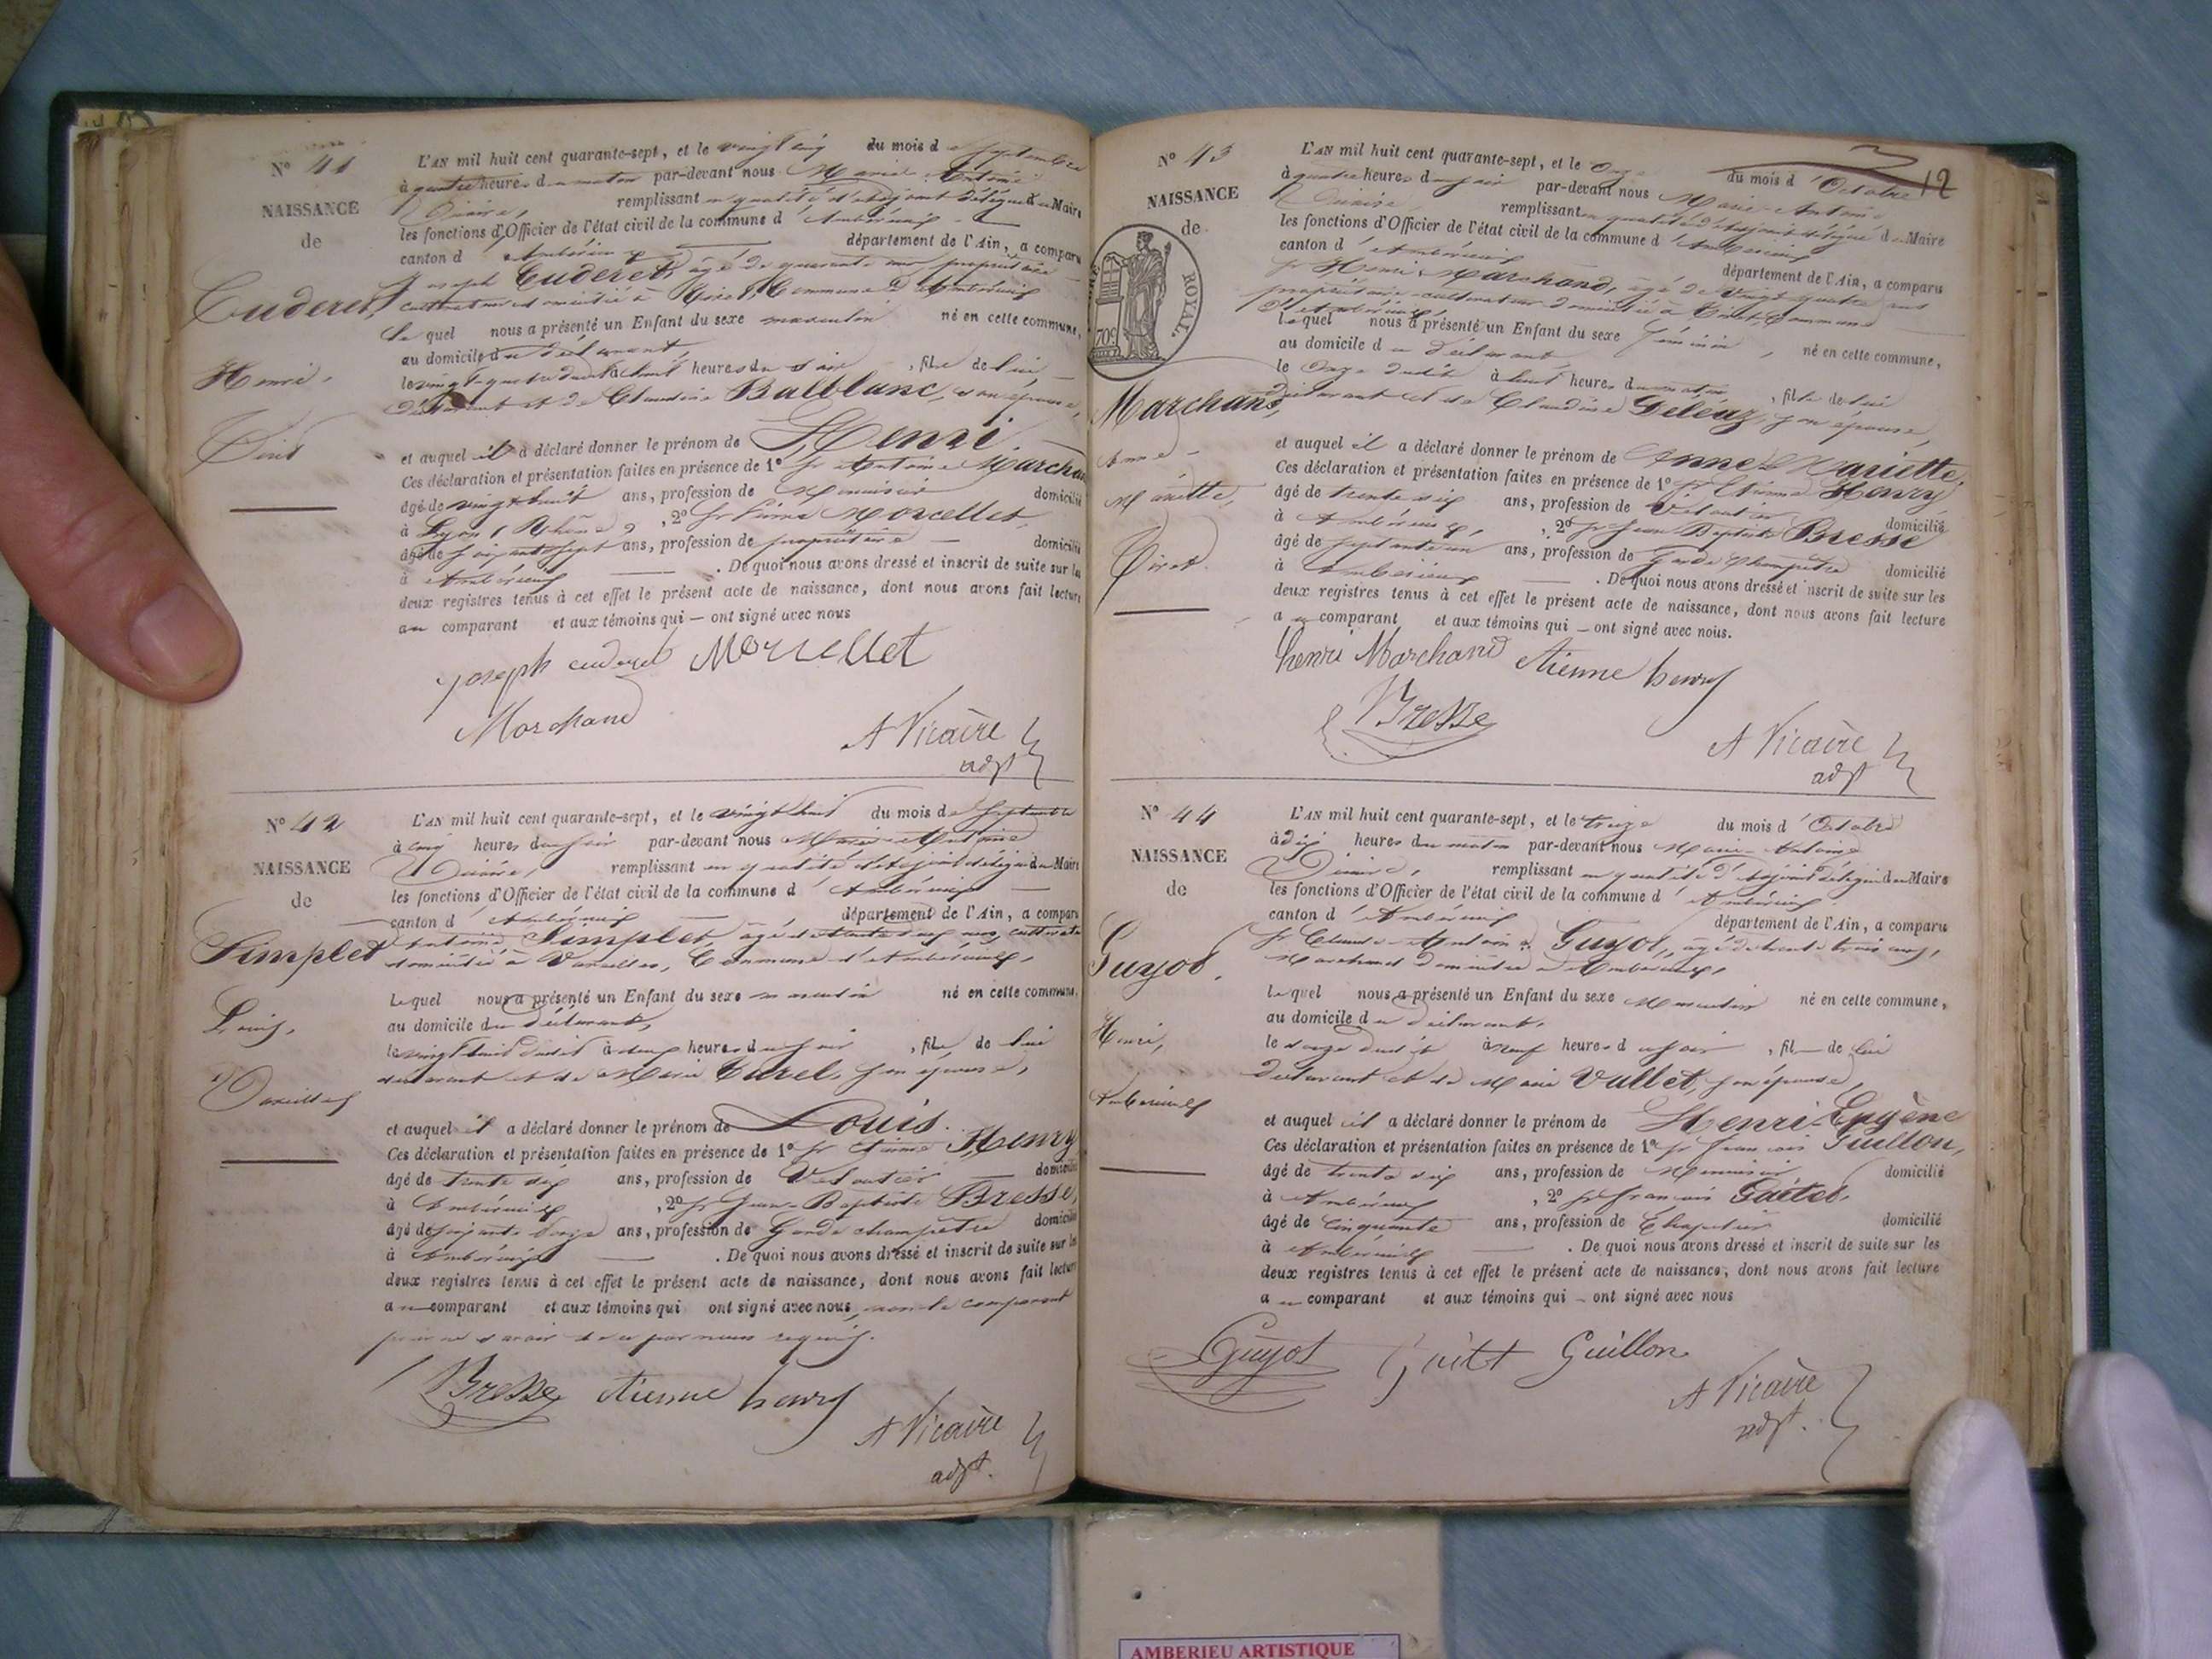 N° 41
NAISSANCE
de
Cuderet,
Henri,
Tiret
L'AN mil huit cent quarante-sept, et le vingt cinq du mois de Septembre
à quatre heures du matin par-devant nous Marie-Antoine
Vicaire, remplissant en qualité d'adjoint délégué du Maire
les fonctions d'Officier de l'état civil de la commune d'Ambérieux
canton d'Ambérieux département de l'Ain, a comparu
Joseph Cuderet, âgé de quarante ans, propriétaire
cultivateur domicilié à Tiret, Commune d'Ambérieux
lequel nous a présenté un Enfant du sexe masculin né en cette commune,
au domicile du déclarant,
le vingt-quatre dudit à huit heures du soir, fils de lui
déclarant et de Claudine Balblanc, son épouse,
et auquel il a déclaré donner le prénom de Henri.
Ces déclaration et présentation faites en présence de 1° sr Antoine Marchand
âgé de vingt huit ans, profession de Menuisier domicilié
à Lyon (Rhône), 2° sr Pierre Morcellet,
âgé de soixante sept ans, profession de propriétaire domicilié
à Ambérieux. De quoi nous avons dressé et inscrit de suite sur les
deux registres tenus à cet effet le présent acte de naissance, dont nous avons fait lecture
au comparant et aux témoins qui — ont signé avec nous
joseph cuderet Morcellet
Marchand
A Vicaire
adjt
N° 42
NAISSANCE
de
Simplet
Louis,
Vareilles
L'AN mil huit cent quarante-sept, et le vingt huit du mois de Septembre
à cinq heures du soir par-devant nous Marie-Antoine
Vicaire, remplissant en qualité d'adjoint délégué du Maire
les fonctions d'Officier de l'état civil de la commune d'Ambérieux
canton d'Ambérieux département de l'Ain, a comparu
Antoine Simplet, âgé de trente neuf ans, cultivateur
domicilié à Vareilles, Commune d'Ambérieux,
Lequel nous a présenté un Enfant du sexe masculin né en cette commune,
au domicile du déclarant,
le vingt huit dudit à deux heures du soir, fils de lui
déclarant et de Marie Curel, son épouse,
et auquel il a déclaré donner le prénom de Louis.
Ces déclaration et présentation faites en présence de 1° sr Etienne Henry
âgé de trente six ans, profession de Veloutier domicilié
à Ambérieux, 2° sr Jean-Baptiste Bresse,
âgé de soixante onze ans, profession de Garde champêtre domicilié
à Ambérieux. De quoi nous avons dressé et inscrit de suite sur les
deux registres tenus à cet effet le présent acte de naissance, dont nous avons fait lecture
au comparant et aux témoins qui ont signé avec nous, non le comparant
pour ne savoir de ce par nous requis.
Bresse etienne henry
A Vicaire
adjt.
12
N° 43
NAISSANCE
de
ROYAL.
70c
Marchand,
Anne-
Mariette,
Tiret.
L'AN mil huit cent quarante-sept, et le Onze du mois d'Octobre
à quatre heures du soir par-devant nous Marie-Antoine
Vicaire remplissant en qualité d'adjoint délégué du Maire
les fonctions d'Officier de l'état civil de la commune d'Ambérieux
canton d'Ambérieux département de l'Ain, a comparu
sr Henri Marchand, âgé de vingt quatre ans
propriétaire-cultivateur domicilié à Tiret, Commune
d'Ambérieux,
Lequel nous a présenté un Enfant du sexe féminin, né en cette commune,
au domicile du déclarant,
le Onze dudit à huit heures du matin, fille de lui
déclarant et de Claudine Deléaz, son épouse,
et auquel il a déclaré donner le prénom de Anne-Mariette,
Ces déclaration et présentation faites en présence de 1° sr Etienne Henry
âgé de trente six ans, profession de Veloutier domicilié
à Ambérieux, 2° sr Jean Baptiste Bresse
âgé de septante un ans, profession de Garde Champêtre domicilié
à Ambérieux. De quoi nous avons dressé et inscrit de suite sur les
deux registres tenus à cet effet le présent acte de naissance, dont nous avons fait lecture
au comparant et aux témoins qui — ont signé avec nous.
henri Marchand etienne henry
Bresse
A Vicaire
adjt
N° 44
NAISSANCE
de
Guyot,
Henri,
Ambérieux
L'AN mil huit cent quarante-sept, et le treize du mois d'Octobre
à dix heures du matin par-devant nous Marie-Antoine
Vicaire, remplissant en qualité d'adjoint délégué du Maire
les fonctions d'Officier de l'état civil de la commune d'Ambérieux
canton d'Ambérieux département de l'Ain, a comparu
sr Claude-Antoine Guyot, âgé de trente trois ans,
Marchand domicilié à Ambérieux,
Lequel nous a présenté un Enfant du sexe Masculin né en cette commune,
au domicile du déclarant,
le douze dudit à neuf heures du soir, fils de lui
déclarant et de Marie Vallet, son épouse,
et auquel il a déclaré donner le prénom de Henri-Eugène
Ces déclaration et présentation faites en présence de 1° sr François Guillon,
âgé de trente six ans, profession de Menuisier domicilié
à Ambérieux, 2° sr François Gaitet,
âgé de cinquante ans, profession de Chapelier domicilié
à Ambérieux. De quoi nous avons dressé et inscrit de suite sur les
deux registres tenus à cet effet le présent acte de naissance, dont nous avons fait lecture
au comparant et aux témoins qui — ont signé avec nous
Guyot Guillon
A Vicaire
adjt.
AMBERIEU ARTISTIQUE